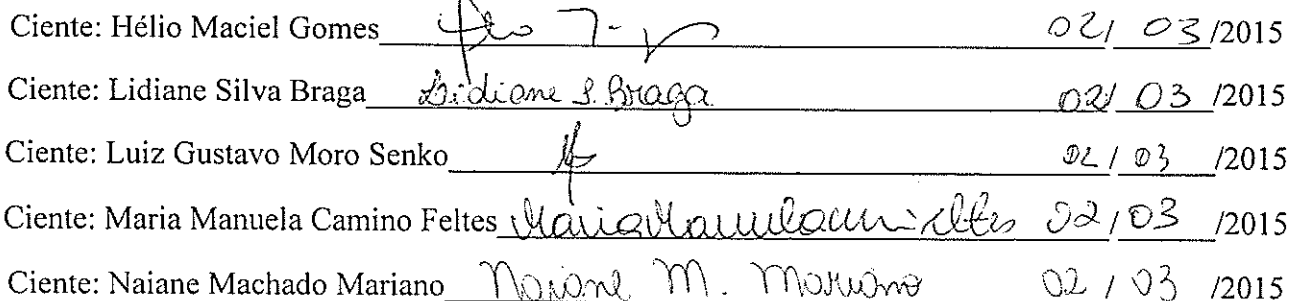 Ciente: Hélio Maciel Gomes 02/ 03 /2015
Ciente: Lidiane Silva Braga Lidiane S. Braga 02/ 03 /2015
Ciente: Luiz Gustavo Moro Senko 02 / 03 /2015
Ciente: Maria Manuela Camino Feltes 02 / 03 /2015
Ciente: Naiane Machado Mariano Naiane M. Mariano 02 / 03 /2015